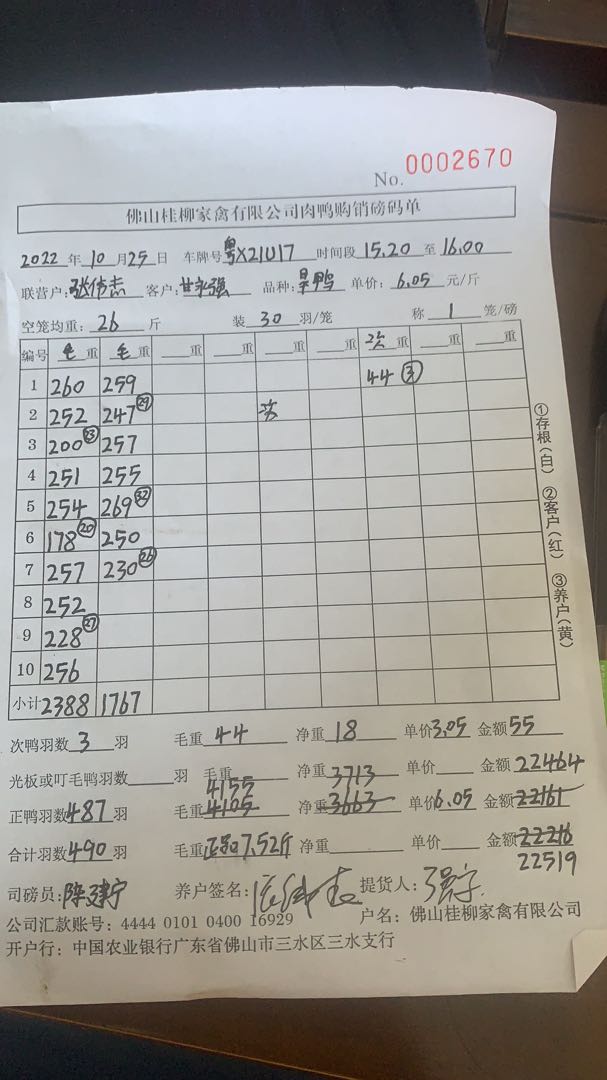 No. 0002670
佛山桂柳家禽有限公司肉鸭购销磅码单
2022 年 10 月 25 日 车牌号 粤X21U17 时间段 15.20 至 16.00
联营户: 张伟志 客户: 甘永强 品种: 旱鸭 单价: 6.05 元/斤
空笼均重: 26 斤 装 30 羽/笼 称 1 笼/磅
编号 毛 重 毛 重 重 重 重 次 重 重 重
1 260 259 44 ③
2 252 247 ㉙
3 200 ㉓ 257
4 251 255
5 254 269 ㉜
6 178 ⑳ 250
7 257 230 ㉖
8 252
9 228 ㉗
10 256
小计 2388 1767
次鸭羽数 3 羽 毛重 44 净重 18 单价 3.05 金额 55
光板或叮毛鸭羽数 羽 毛重 净重 单价 金额 22464
4155 3713
正鸭羽数 487 羽 毛重 4105 净重 3663 单价 6.05 金额 22161
合计羽数 490 羽 毛重 正品 7.52斤 净重 单价 金额 22216
22519
司磅员: 养户签名: 提货人:
公司汇款账号: 4444 0101 0400 16929 户名: 佛山桂柳家禽有限公司
开户行: 中国农业银行广东省佛山市三水区三水支行
①存根(白) ②客户(红) ③养户(黄)